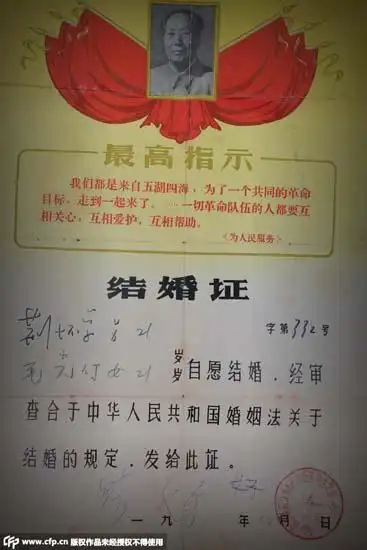 最高指示
我们都是来自五湖四海，为了一个共同的革命
目标，走到一起来了。……一切革命队伍的人都要互
相关心，互相爱护，互相帮助。
《为人民服务》
结婚证
字第332号
男21岁
女21岁
自愿结婚，经审
查合于中华人民共和国婚姻法关于
结婚的规定，发给此证。
一九 年 月 日
www.cfp.cn 版权作品未经授权不得使用